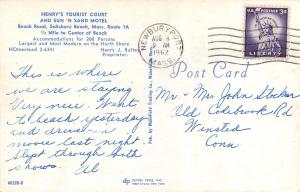 HENRY'S TOURIST COURT
AND SUN 'N SAND MOTEL
Beach Road, Salisbury Beach, Mass., Route 1A
½ Mile to Center of Beach
Accommodations for 200 Persons
Largest and Most Modern on the North Shore
HOmestead 2-4341
Henry J.
Proprietor.
This is where
we are staying
Very nice. Went
to beach yesterday
and drive-in
movie last night.
Slept through both
shows. Al
NEWBURYPORT
AUG
AM
1962
MASS.
3¢
LIBERTY
Post Card
Mr + Mrs John
Old Colebrook Rd
Winsted
Conn
DEXTER PRESS, INC.